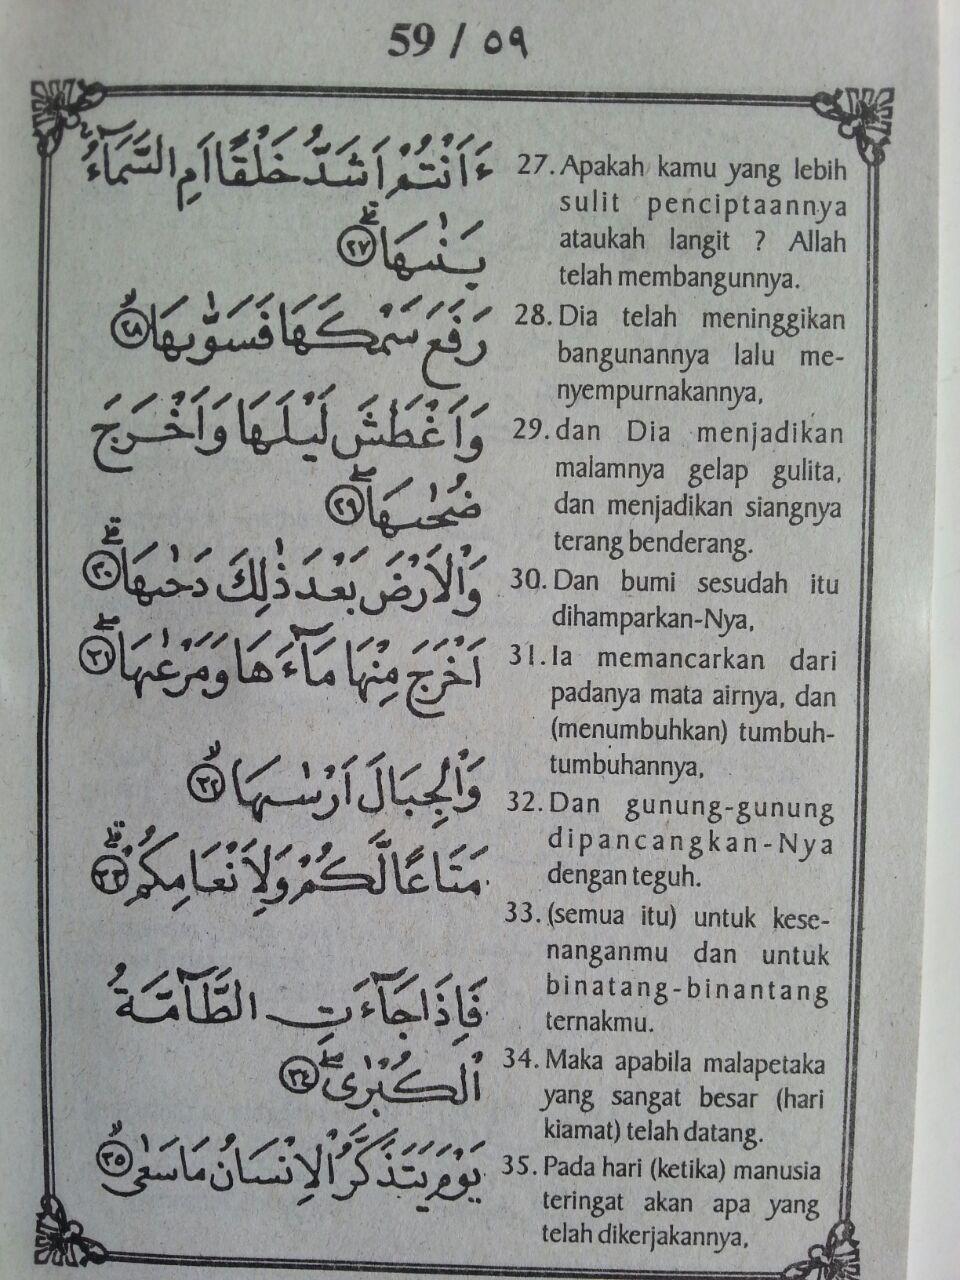 59 / ٥٩
ءَاَنْتُمْ اَشَدُّ خَلْقًا اَمِ السَّمَآءُ
بَنٰىهَا ٢٧
رَفَعَ سَمْكَهَا فَسَوّٰىهَا ٢٨
وَاَغْطَشَ لَيْلَهَا وَاَخْرَجَ
ضُحٰىهَا ٢٩
وَالْاَرْضَ بَعْدَ ذٰلِكَ دَحٰىهَا ٣٠
اَخْرَجَ مِنْهَا مَآءَهَا وَمَرْعٰىهَا ٣١
وَالْجِبَالَ اَرْسٰىهَا ٣٢
مَتَاعًا لَّكُمْ وَلِاَنْعَامِكُمْ ٣٣
فَاِذَا جَآءَتِ الطَّآمَّةُ
الْكُبْرٰى ٣٤
يَوْمَ يَتَذَكَّرُ الْاِنْسَانُ مَا سَعٰى ٣٥
27. Apakah kamu yang lebih
sulit penciptaannya
ataukah langit ? Allah
telah membangunnya.
28. Dia telah meninggikan
bangunannya lalu me-
nyempurnakannya,
29. dan Dia menjadikan
malamnya gelap gulita,
dan menjadikan siangnya
terang benderang.
30. Dan bumi sesudah itu
dihamparkan-Nya,
31. Ia memancarkan dari
padanya mata airnya, dan
(menumbuhkan) tumbuh-
tumbuhannya,
32. Dan gunung-gunung
dipancangkan-Nya
dengan teguh.
33. (semua itu) untuk kese-
nanganmu dan untuk
binatang-binantang
ternakmu.
34. Maka apabila malapetaka
yang sangat besar (hari
kiamat) telah datang.
35. Pada hari (ketika) manusia
teringat akan apa yang
telah dikerjakannya,